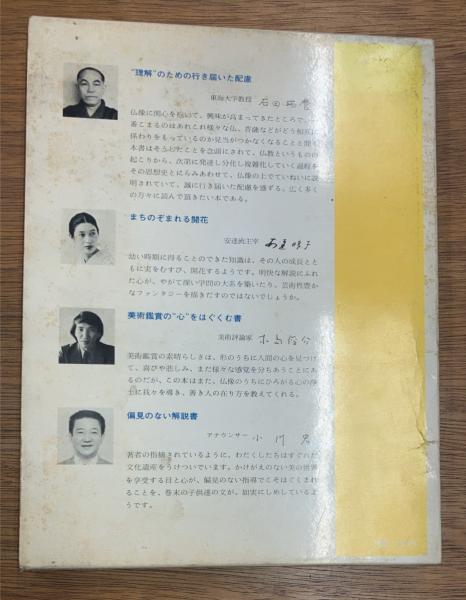 “理解”のための行き届いた配慮
東海大学教授 石田瑞麿
仏像に関心を抱いて、興味が高まってきたところで、一
番こまるのはあれこれ様々な仏、菩薩などがどう相互に
係わりをもっているのか見当がつかなくなることと聞く
本書はそうしたことを念頭にされて、仏教というものの
起こりから、次第に発達し分化し複雑化していく過程を
その思想史とにらみあわせて、仏像の上でていねいに説
明されていて、誠に行き届いた配慮を感ずる。広く多く
の方々に読んで頂きたい本である。
まちのぞまれる開花
安達流主宰 安達瞳子
幼い時期に得ることのできた知識は、その人の成長とと
もに実をむすび、開花するようです。明快な解説にふれ
た心が、やがて深い学問の大系を築いたり、芸術性豊か
なファンタジーを描きだすのではないでしょうか。
美術鑑賞の“心”をはぐくむ書
美術評論家
美術鑑賞の素晴らしさは、形のうちに人間の心を見つけ
て、喜びや悲しみ、また様々な感覚を分ちあうことにあ
るのだが、この本はまた、仏像のうちにひろがる心の浄
土に我々を導き、善き人の在り方を教えてくれる。
偏見のない解説書
アナウンサー 小川宏
著者の指摘されているように、わたくしたちはすぐれた
文化遺産をうけついでいます。かけがえのない美の世界
を享受する目と心が、偏見のない指導でこそはぐくまれ
ることを、巻末の子供達の文が、如実にしめしているよ
うです。